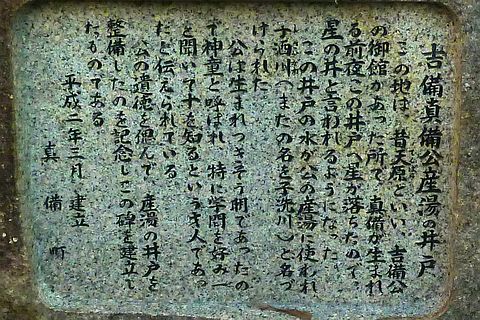 吉備真備公産湯の井戸
この地は、昔天原といい、吉備公
の御館があった所で、真備が生まれ
る前夜この井戸へ星が落ちたので、
星の井と言われるようになった。
この井戸の水が公の産湯に使われ
子洒川(またの名を子洗川)と名づ
けられた
公は生まれつきそう明であったの
で神童と呼ばれ、特に学問を好み一
を聞いて十を知るという才人であっ
たと伝えられている。
公の遺徳を偲んで、産湯の井戸を
整備したのを記念しこの碑を建立し
たものである
平成二年三月 建立
真備町